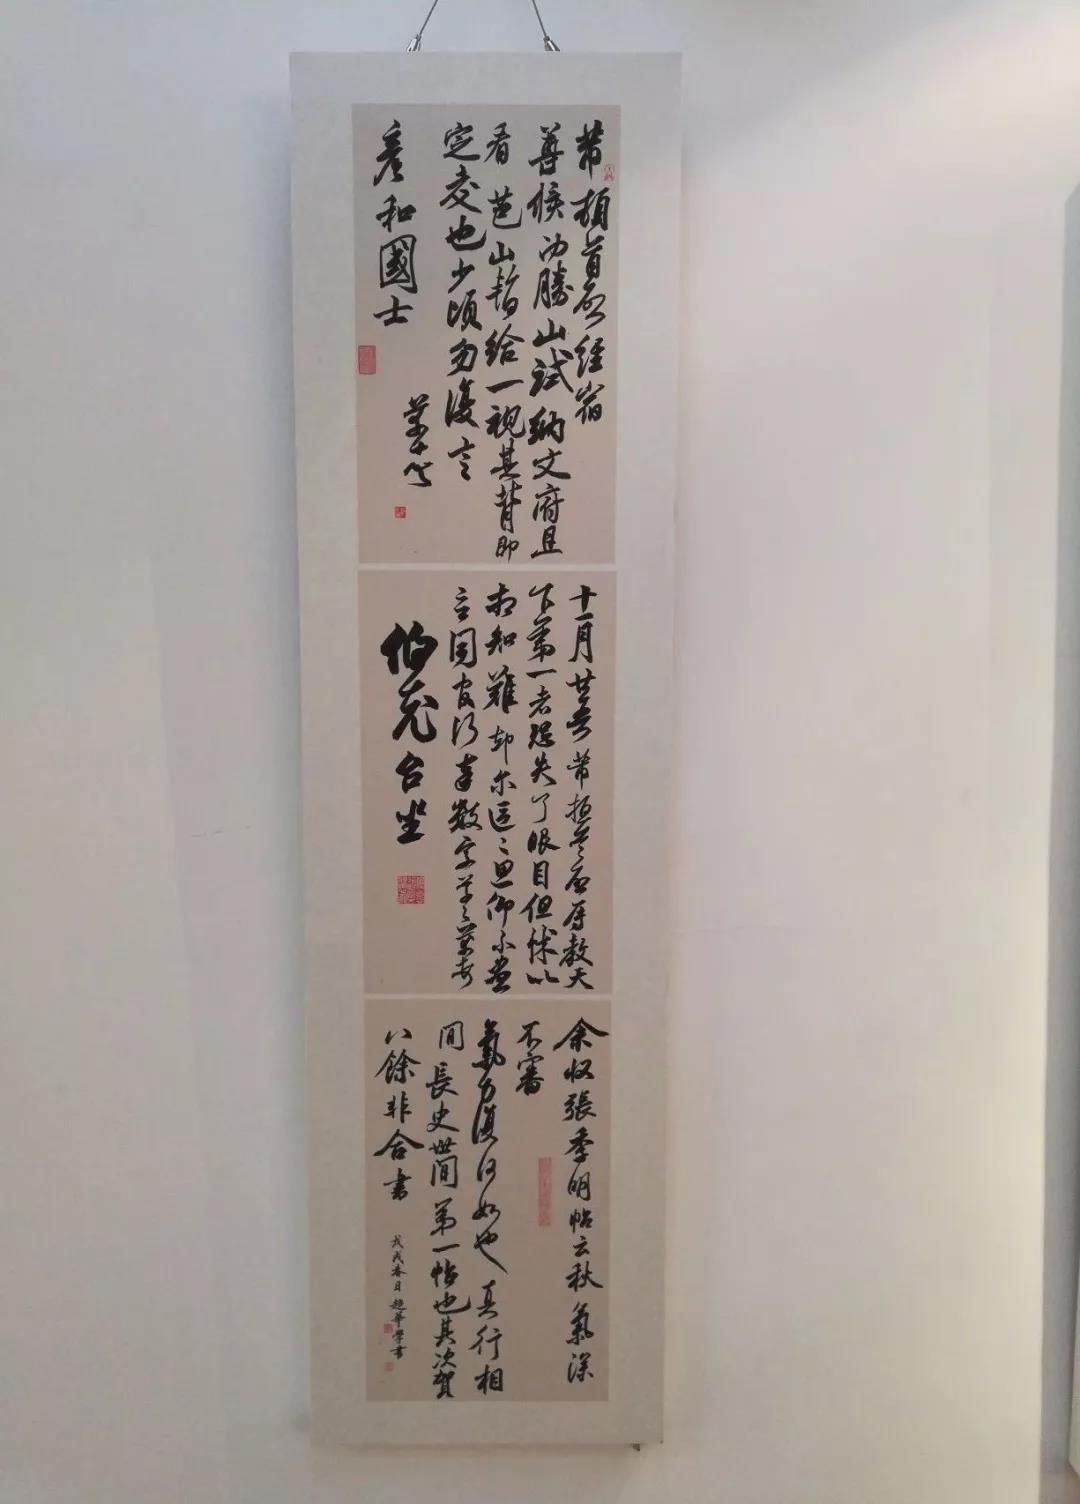 芾頓首啓經宿
尊候沖勝山試納文府且
看芭山暫給一視其背即
定交也少頃勿復言
彥和國士
芾
十一月廿五日芾頓首啓辱教天
下第一者恐失了眼目但怵以
相知難却尔區區思仰不盡
言同官行奉數字草草芾頓
伯充台坐
余收張季明帖云秋氣深
不審
氣力復何如也真行相
間長史世間第一帖也其次賀
八餘非合書
戊戌春日 趙華學書